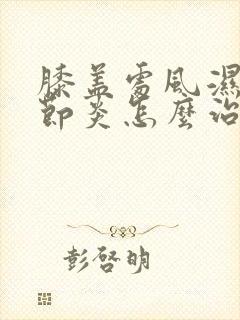 膝盖處風濕
節炎怎麼治
彭啓明